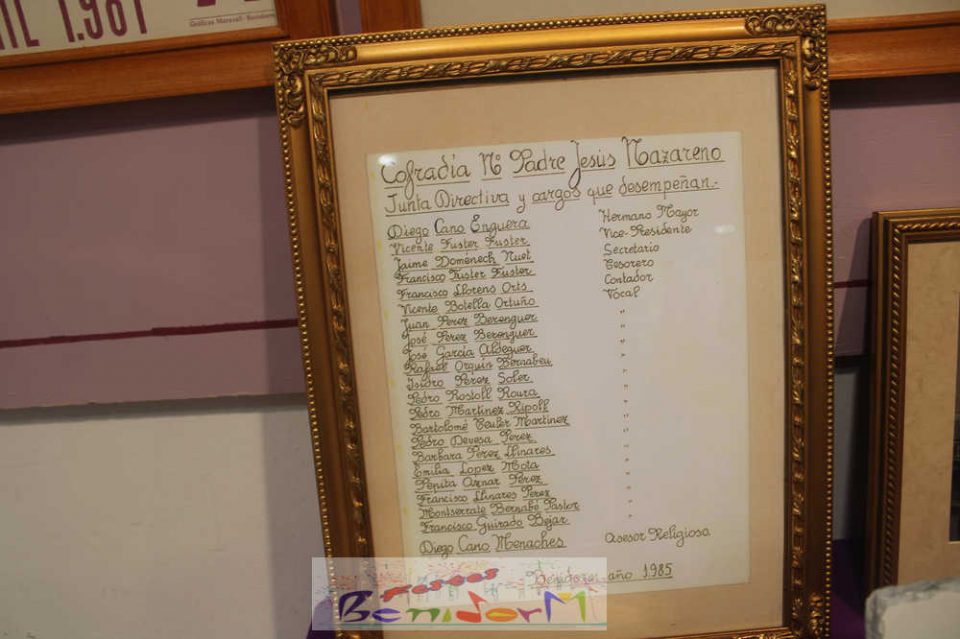 IL 1.981
Gráficas Maravall - Benidorm
Cofradía Nº Padre Jesús Nazareno
Junta Directiva y cargos que desempeñan.-
Diego Cano Enguera Hermano Mayor
Vicente Fuster Fuster Vice-Presidente
Jaime Doménech Nuet Secretario
Francisco Fuster Fuster Tesorero
Francisco Llorens Orts Contador
Vicente Botella Ortuño Vocal
Juan Perez Berenguer "
José Perez Berenguer "
José García Aldeguer "
Rafael Orquin Bernabeu "
Isidro Perez Soler "
Pedro Rostoll Roura "
Pedro Martinez Ripoll "
Bartolomé Teuler Martinez "
Pedro Devesa Perez "
Barbara Perez Llinares "
Emilia Lopez Mota "
Pepita Aznar Perez "
Francisco Llinares Perez "
Montserrate Bernabé Pastor "
Francisco Guirado Bejar "
Diego Cano Menaches Asesor Religioso
Benidorm año 1.985
Fotos
BenidorM